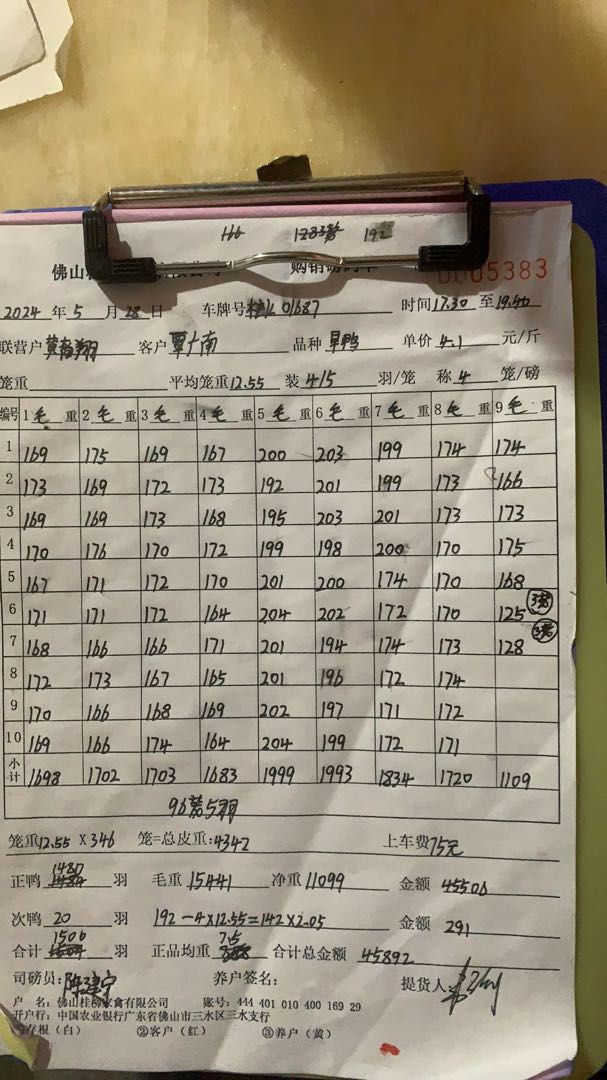 192
佛山 购销磅码单
0005383
2024 年 5 月 28 日 车牌号 01687 时间 17.30 至 19.40
联营户 客户 覃广南 品种 旱鸭 单价 4.1 元/斤
笼重 平均笼重 12.55 装 4/5 羽/笼 称 4 笼/磅
编号 1 毛 重 2 毛 重 3 毛 重 4 毛 重 5 毛 重 6 毛 重 7 毛 重 8 毛 重 9 毛 重
1 169 175 169 167 200 203 199 174 174
2 173 169 172 173 192 201 199 173 166
3 169 169 173 168 195 203 201 173 173
4 170 176 170 172 199 198 200 170 175
5 167 171 172 170 201 200 174 170 168
6 171 171 172 164 204 202 172 170 125 3笼
7 168 166 166 171 201 194 174 173 128 3笼
8 172 173 167 165 201 196 172 174
9 170 166 168 169 202 197 171 172
10 169 166 174 164 204 199 172 171
小计 1698 1702 1703 1683 1999 1993 1834 1720 1109
96笼5羽
笼重 12.55 X 346 笼=总皮重: 4342 上车费 75元
正鸭 1480 羽 毛重 15441 净重 11099 金额 45506
次鸭 20 羽 192-4×12.55=142×2.05 金额 291
合计 1500 羽 正品均重 7.5 合计总金额 45892
司磅员: 陈建宁 养户签名: 提货人:
户 名: 佛山桂柳家禽有限公司 账号: 444 401 010 400 169 29
开户行: 中国农业银行广东省佛山市三水区三水支行
①存根(白) ②客户(红) ③养户(黄)